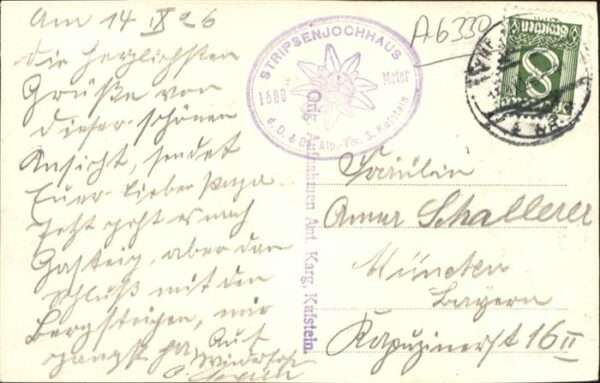 Am 14 IX 26
Die herzlichsten
Grüße von
dieser schönen
Ansicht, sendet
Euer lieber Papa.
Jetzt geht es nach
Gasteig, aber dan
Schluß mit den
Bergsteigen, mir
Auf
Wiedersehn
STRIPSENJOCHHAUS
1580 Meter
d. D. & Oe. Alp.-Ver. S. Kufstein
Orig. Aufnahmen Ant. Karg, Kufstein.
A6330
8
Fräulein
Anna Schallerer
München
Bayern
Kapuzinerst 16 II